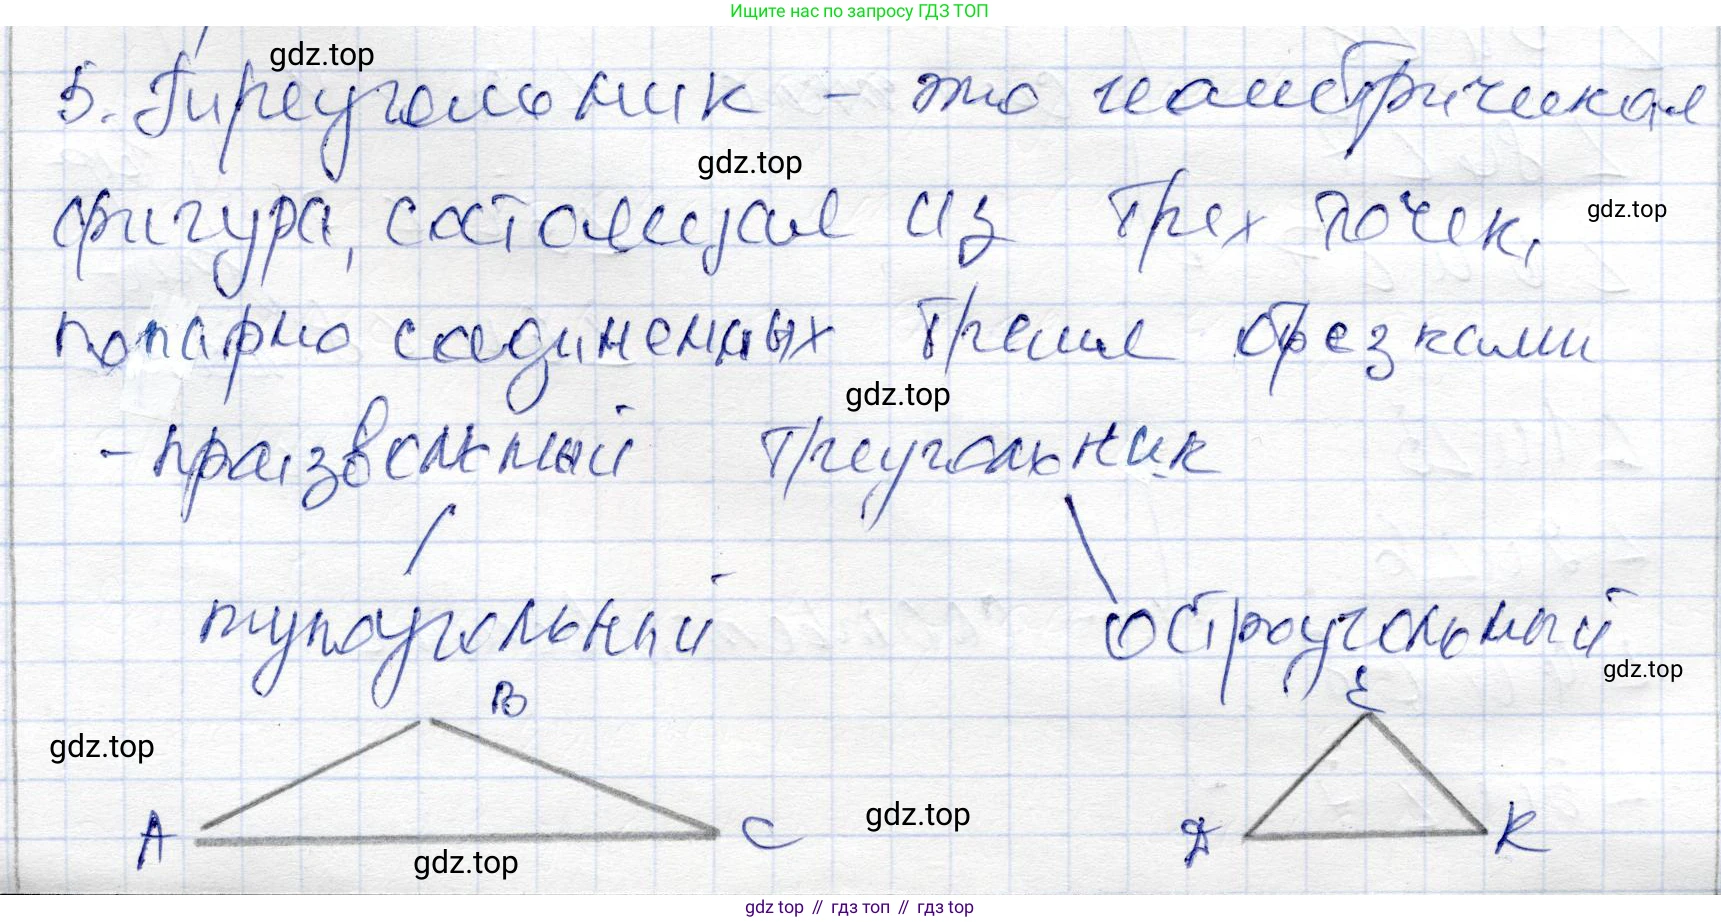 Ищите нас по запросу ГДЗ ТОП
gdz.top
5. Треугольник – это геометрическая
gdz.top
фигура, состоящая из трех точек,
gdz.top
попарно соединенных тремя отрезками
gdz.top
– произвольный треугольник
тупоугольный остроугольный
gdz.top
B E
gdz.top
A C Д K
gdz.top
gdz.top
gdz top // гдз топ // гдз top